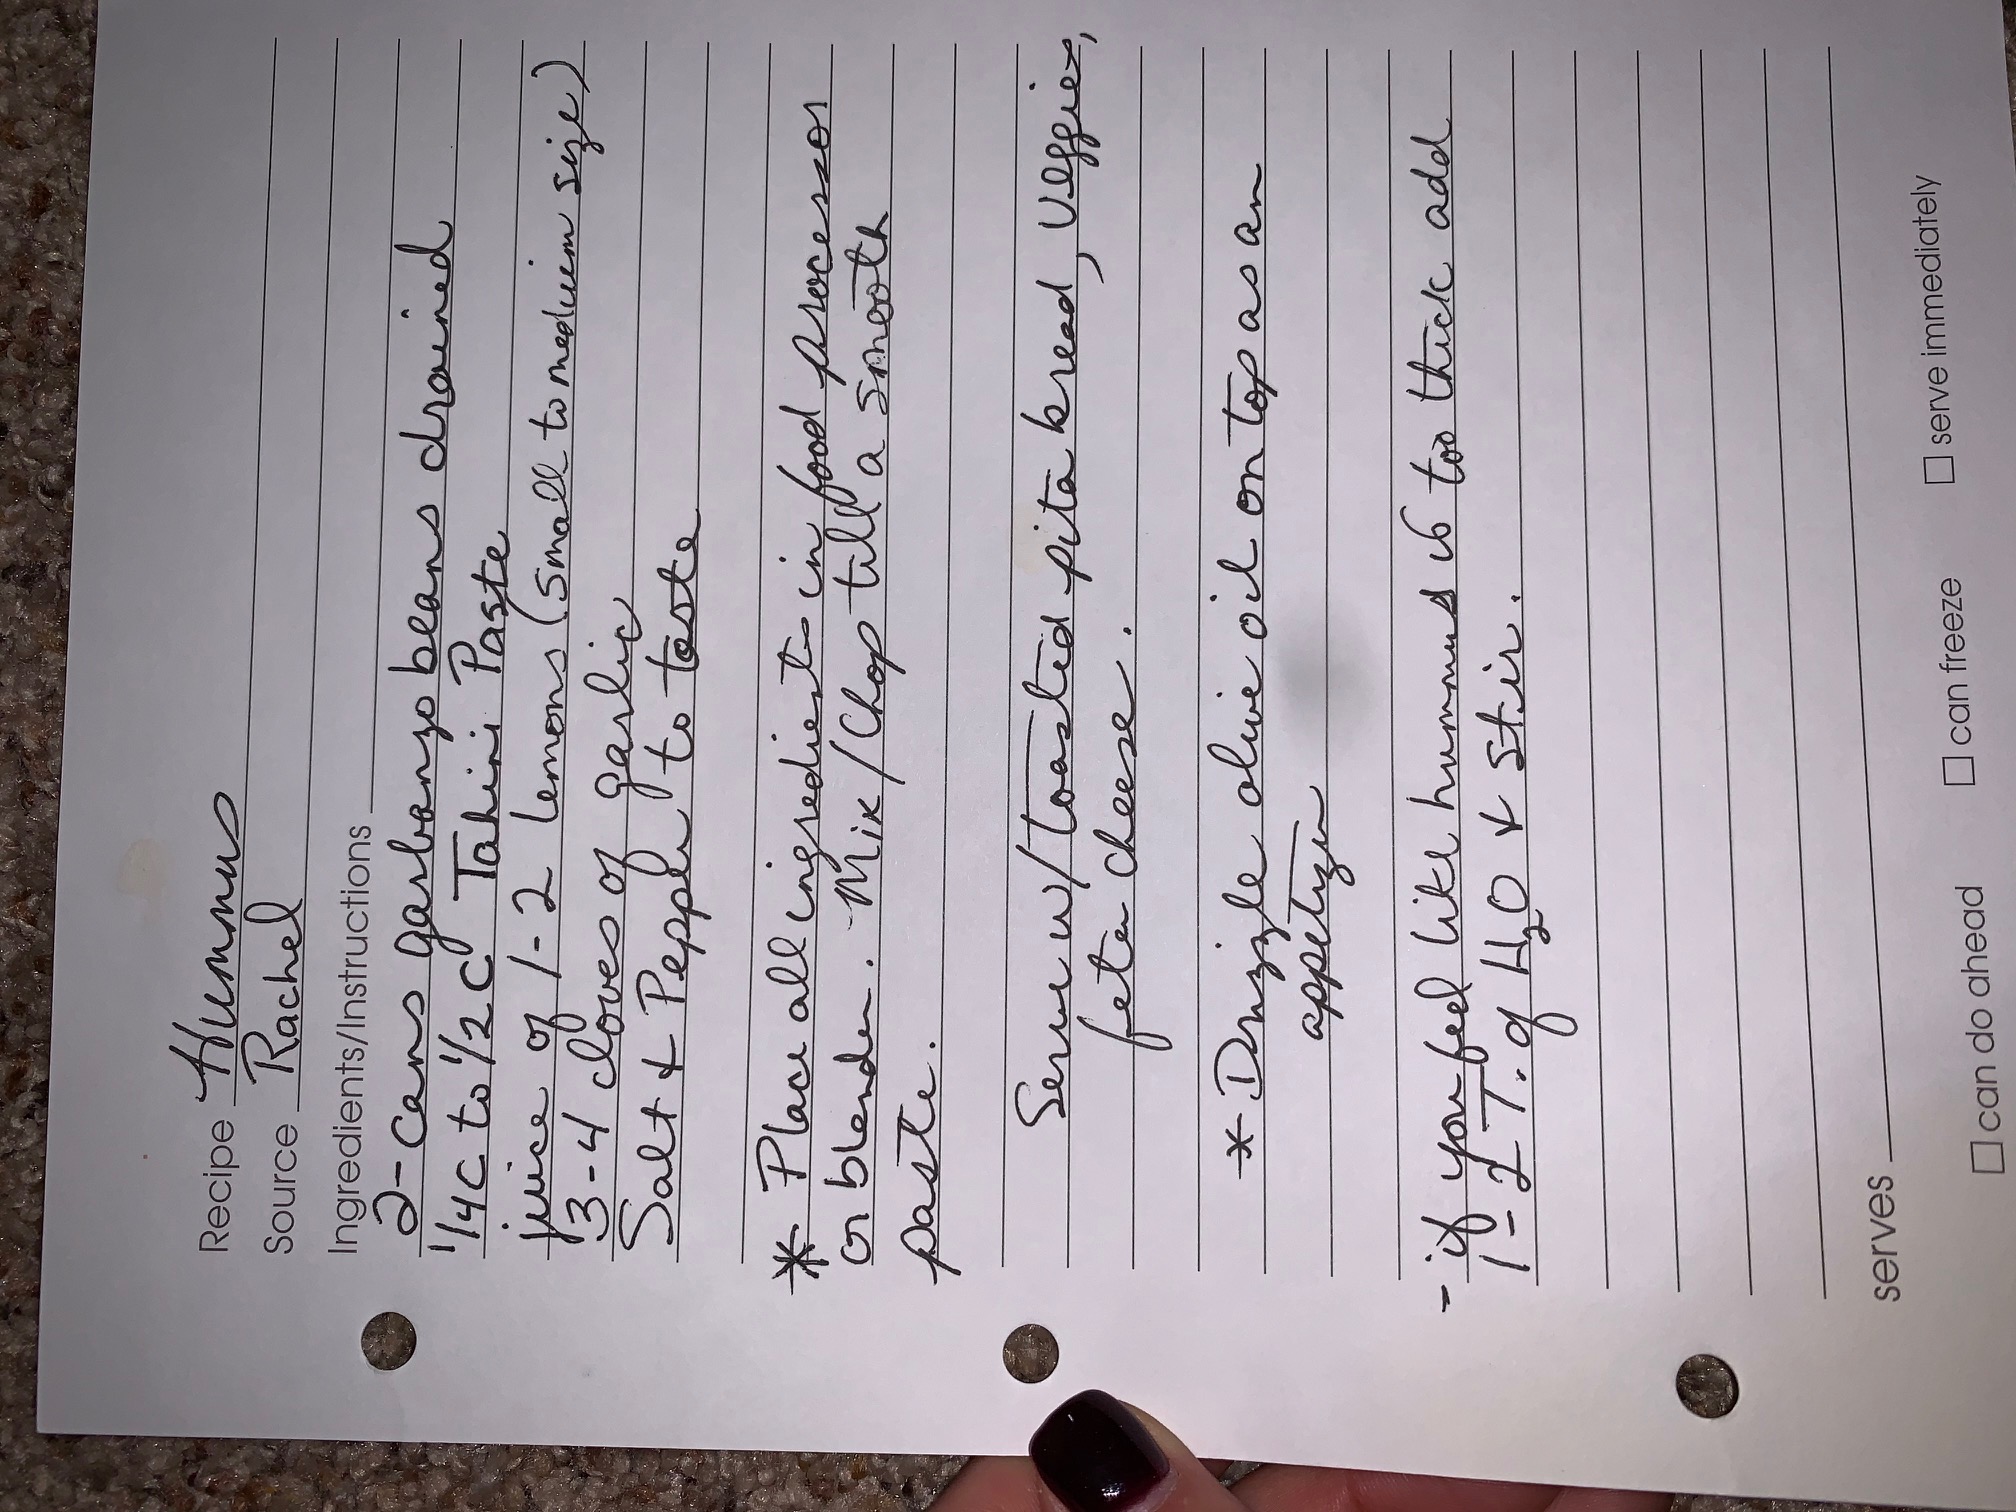 Recipe Hummus
Source Rachel
Ingredients/Instructions
2-cans garbanzo beans drained
1/4c to 1/2 c Tahini Paste
juice of 1-2 lemons (small to meduim size)
3-4 cloves of garlic
Salt & Pepper to taste
* Place all ingredients in food processor
or blender. Mix/Chop till a smooth
paste.
Serve w/toasted pita bread, veggies,
feta cheese.
* Drizzle olive oil on top as an
appetizer
- if you feel like hummus is too thick add
1-2 T. of H₂O & stir.
serves
□ can do ahead □ can freeze □ serve immediately